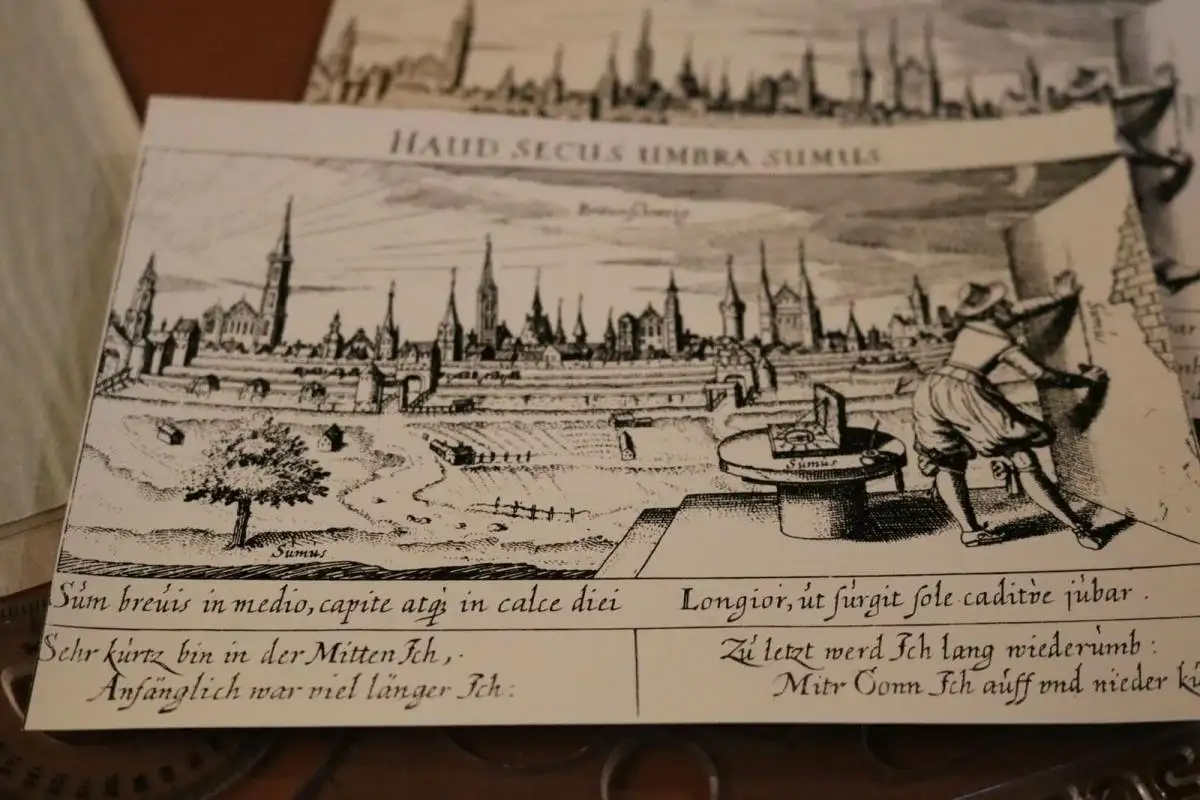 HAUD SECUS UMBRA SUMUS
Braunschweig
Sumus
Sumus
Súm breúis in medio, capite atq́; in calce diei
Longior, út súrgit sole caditve júbar.
Sehr kúrtz bin in der Mitten Ich,
Anfänglich war viel länger Ich:
Zú letzt werd Ich lang wiederúmb:
Mitr Sonn Ich aúff vnd nieder kú